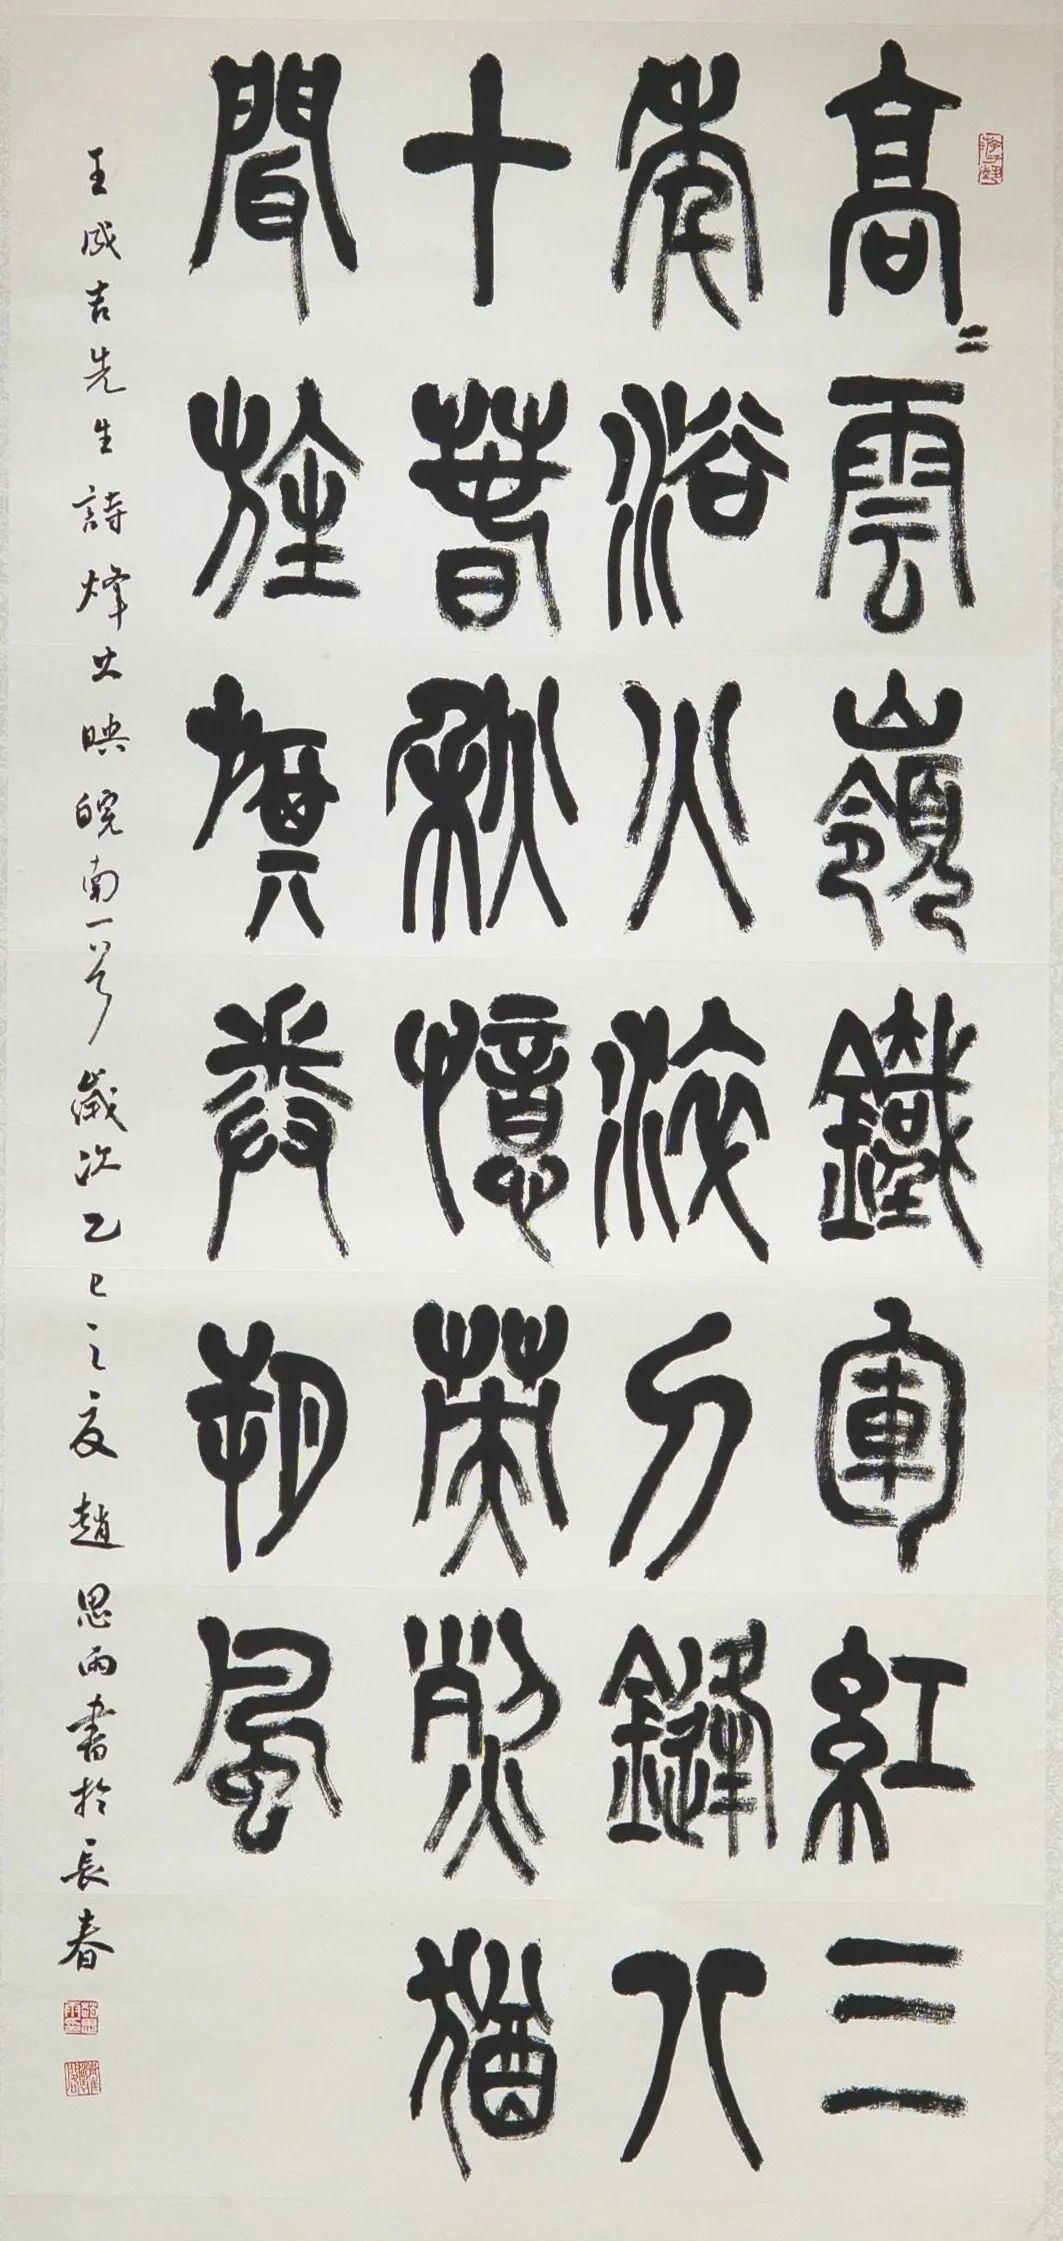 高〻雲嶺鐵軍紅三
年浴火淬刀鋒八
十春秋憶英烈猶
聞旌旗卷朔風
王成吉先生詩烽火映皖南一首歲次乙巳之夏趙思雨書於長春